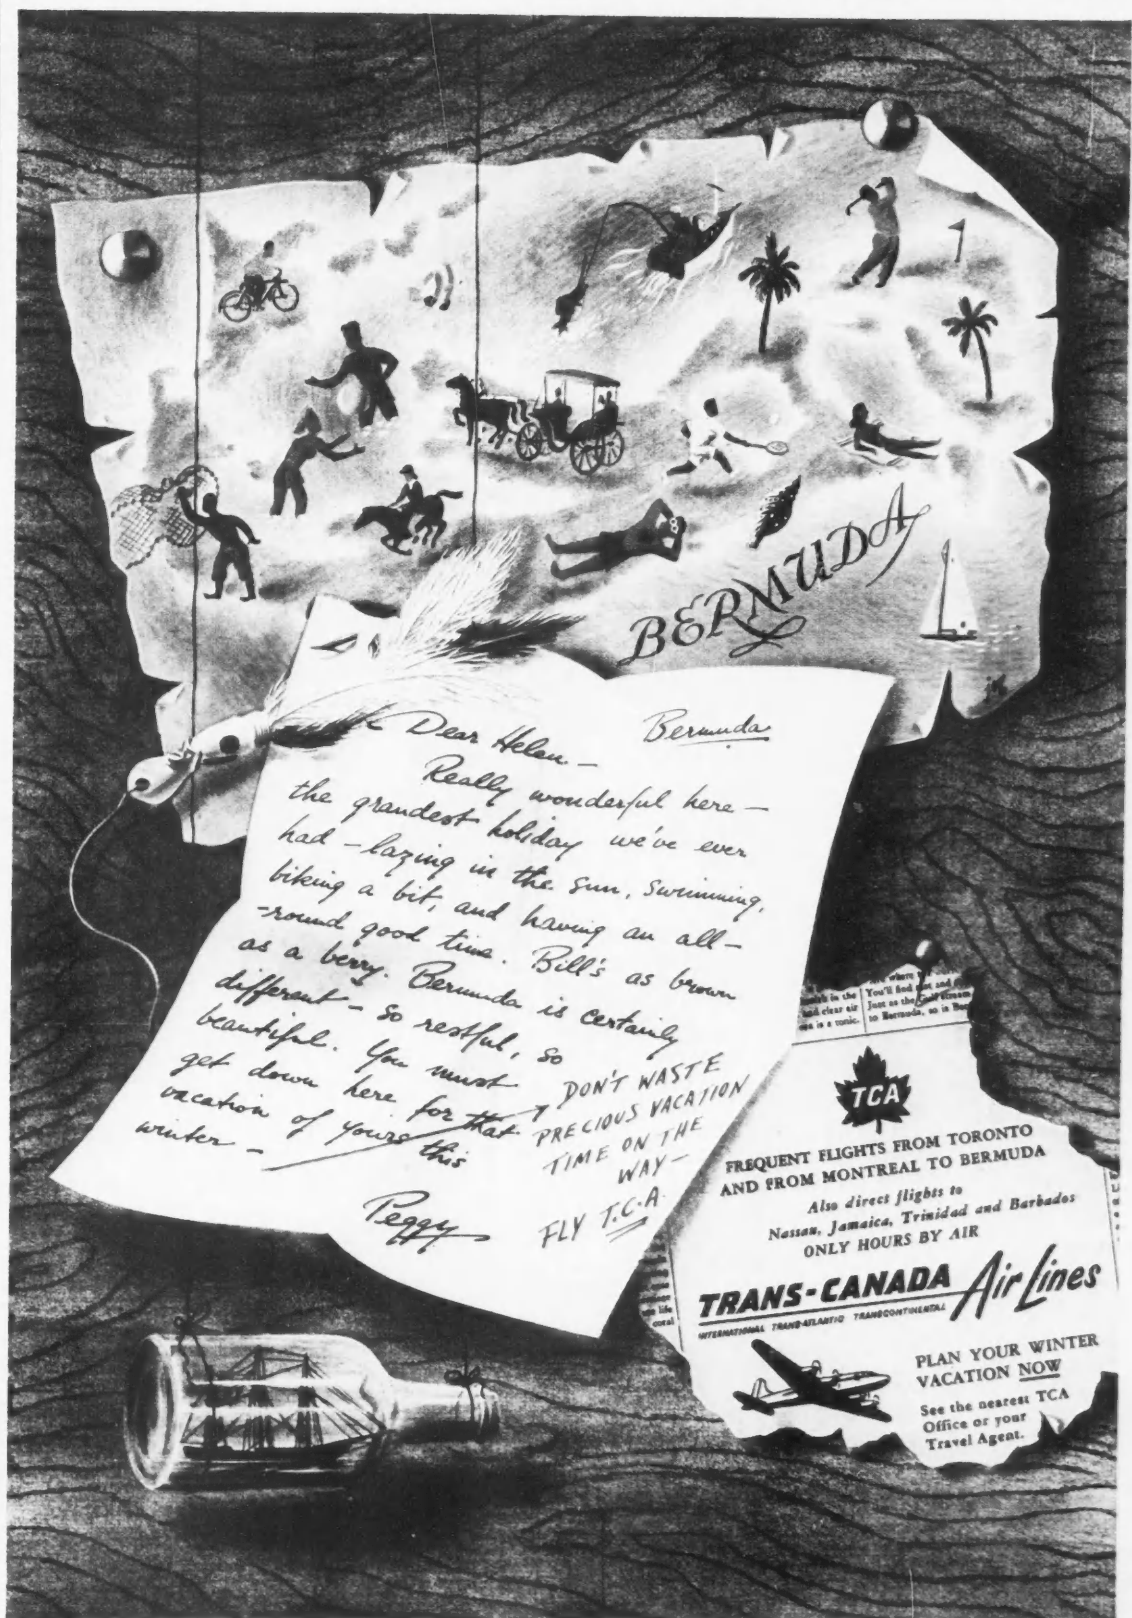 BERMUDA
Bermuda
Dear Helen —
Really wonderful here —
the grandest holiday we've ever
had — lazing in the sun, swimming,
biking a bit, and having an all-
-round good time. Bill's as brown
as a berry. Bermuda is certainly
different — so restful, so
beautiful. You must
get down here for that
vacation of yours this
winter —
Peggy
DON'T WASTE
PRECIOUS VACATION
TIME ON THE
WAY —
FLY T.C.A.
in the
and clear air
is a tonic.
where
You'll find and
Just as the Gulf Stream
to Bermuda, so is
life
coral
TCA
FREQUENT FLIGHTS FROM TORONTO
AND FROM MONTREAL TO BERMUDA
Also direct flights to
Nassau, Jamaica, Trinidad and Barbados
ONLY HOURS BY AIR
TRANS-CANADA Air Lines
INTERNATIONAL TRANS-ATLANTIC TRANSCONTINENTAL
PLAN YOUR WINTER
VACATION NOW
See the nearest TCA
Office or your
Travel Agent.